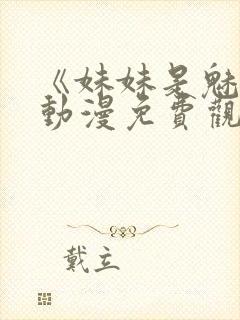 《妹妹是魅
動漫免費觀
戴立